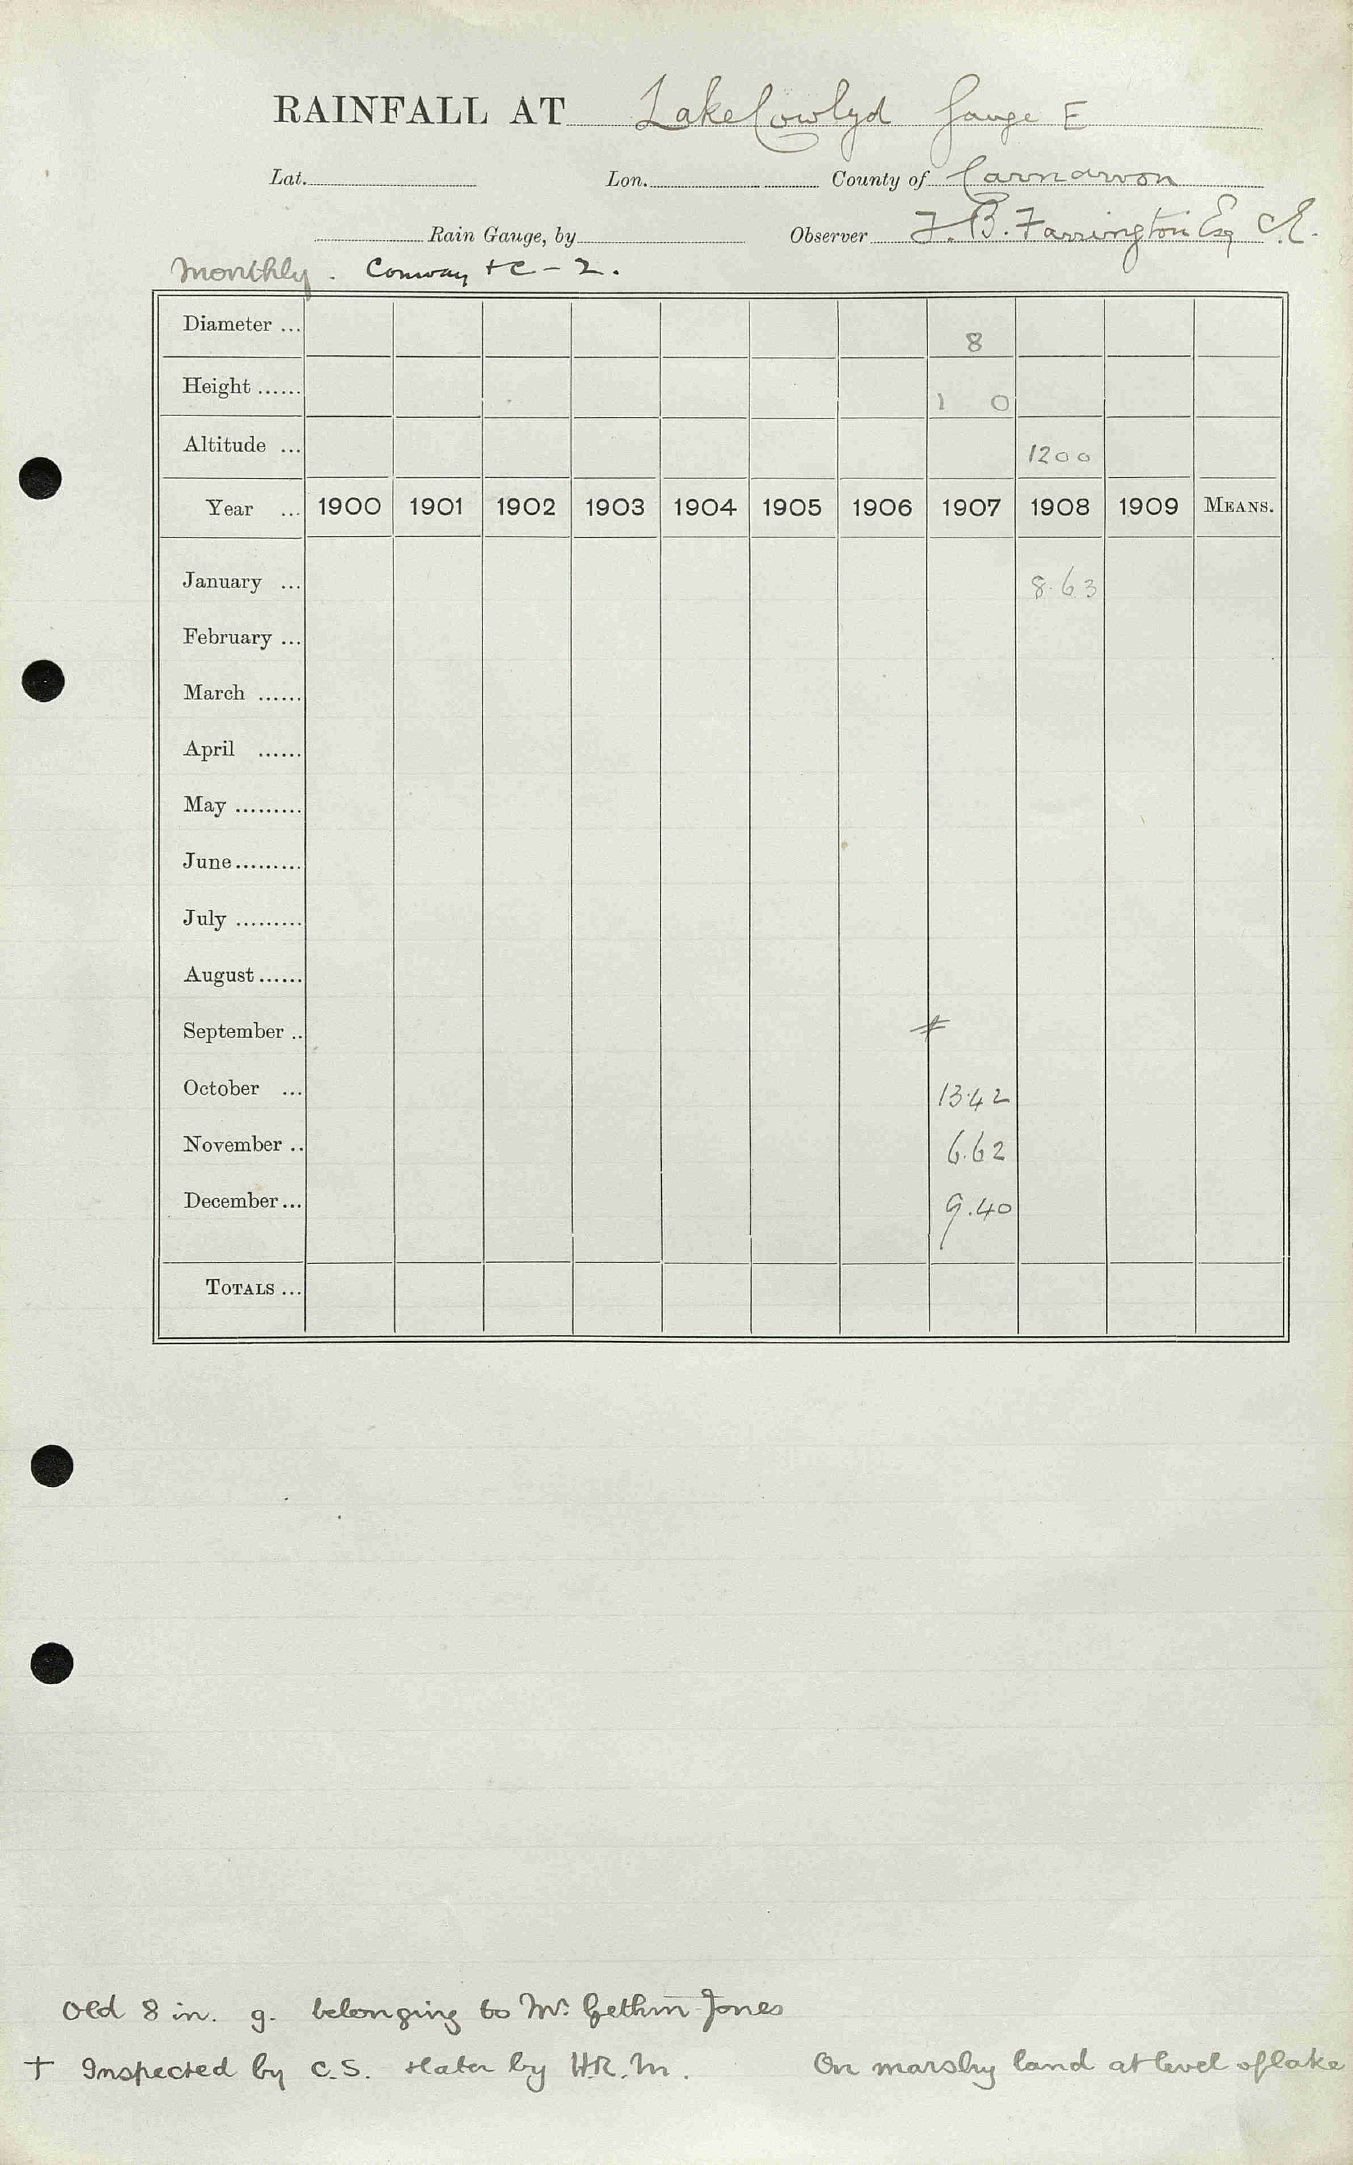 RAINFALL AT Lake Cowlyd Gauge E
Lat. Lon. County of Carnarvon
Rain Gauge, by Observer F. B. Farrington Esq C.E.
Monthly. Conway + C - 2.
Diameter ... 8
Height ...... 1 0
Altitude ... 1200
Year ... 1900 1901 1902 1903 1904 1905 1906 1907 1908 1909 MEANS.
January ... 8.63
February ...
March ......
April ......
May .........
June.........
July .........
August......
September ..
October ... 13.42
November .. 6.62
December... 9.40
TOTALS ...
Old 8 in. g. belonging to Mr. Gethin Jones
† Inspected by C.S. & later by H.R.M. On marshy land at level of lake